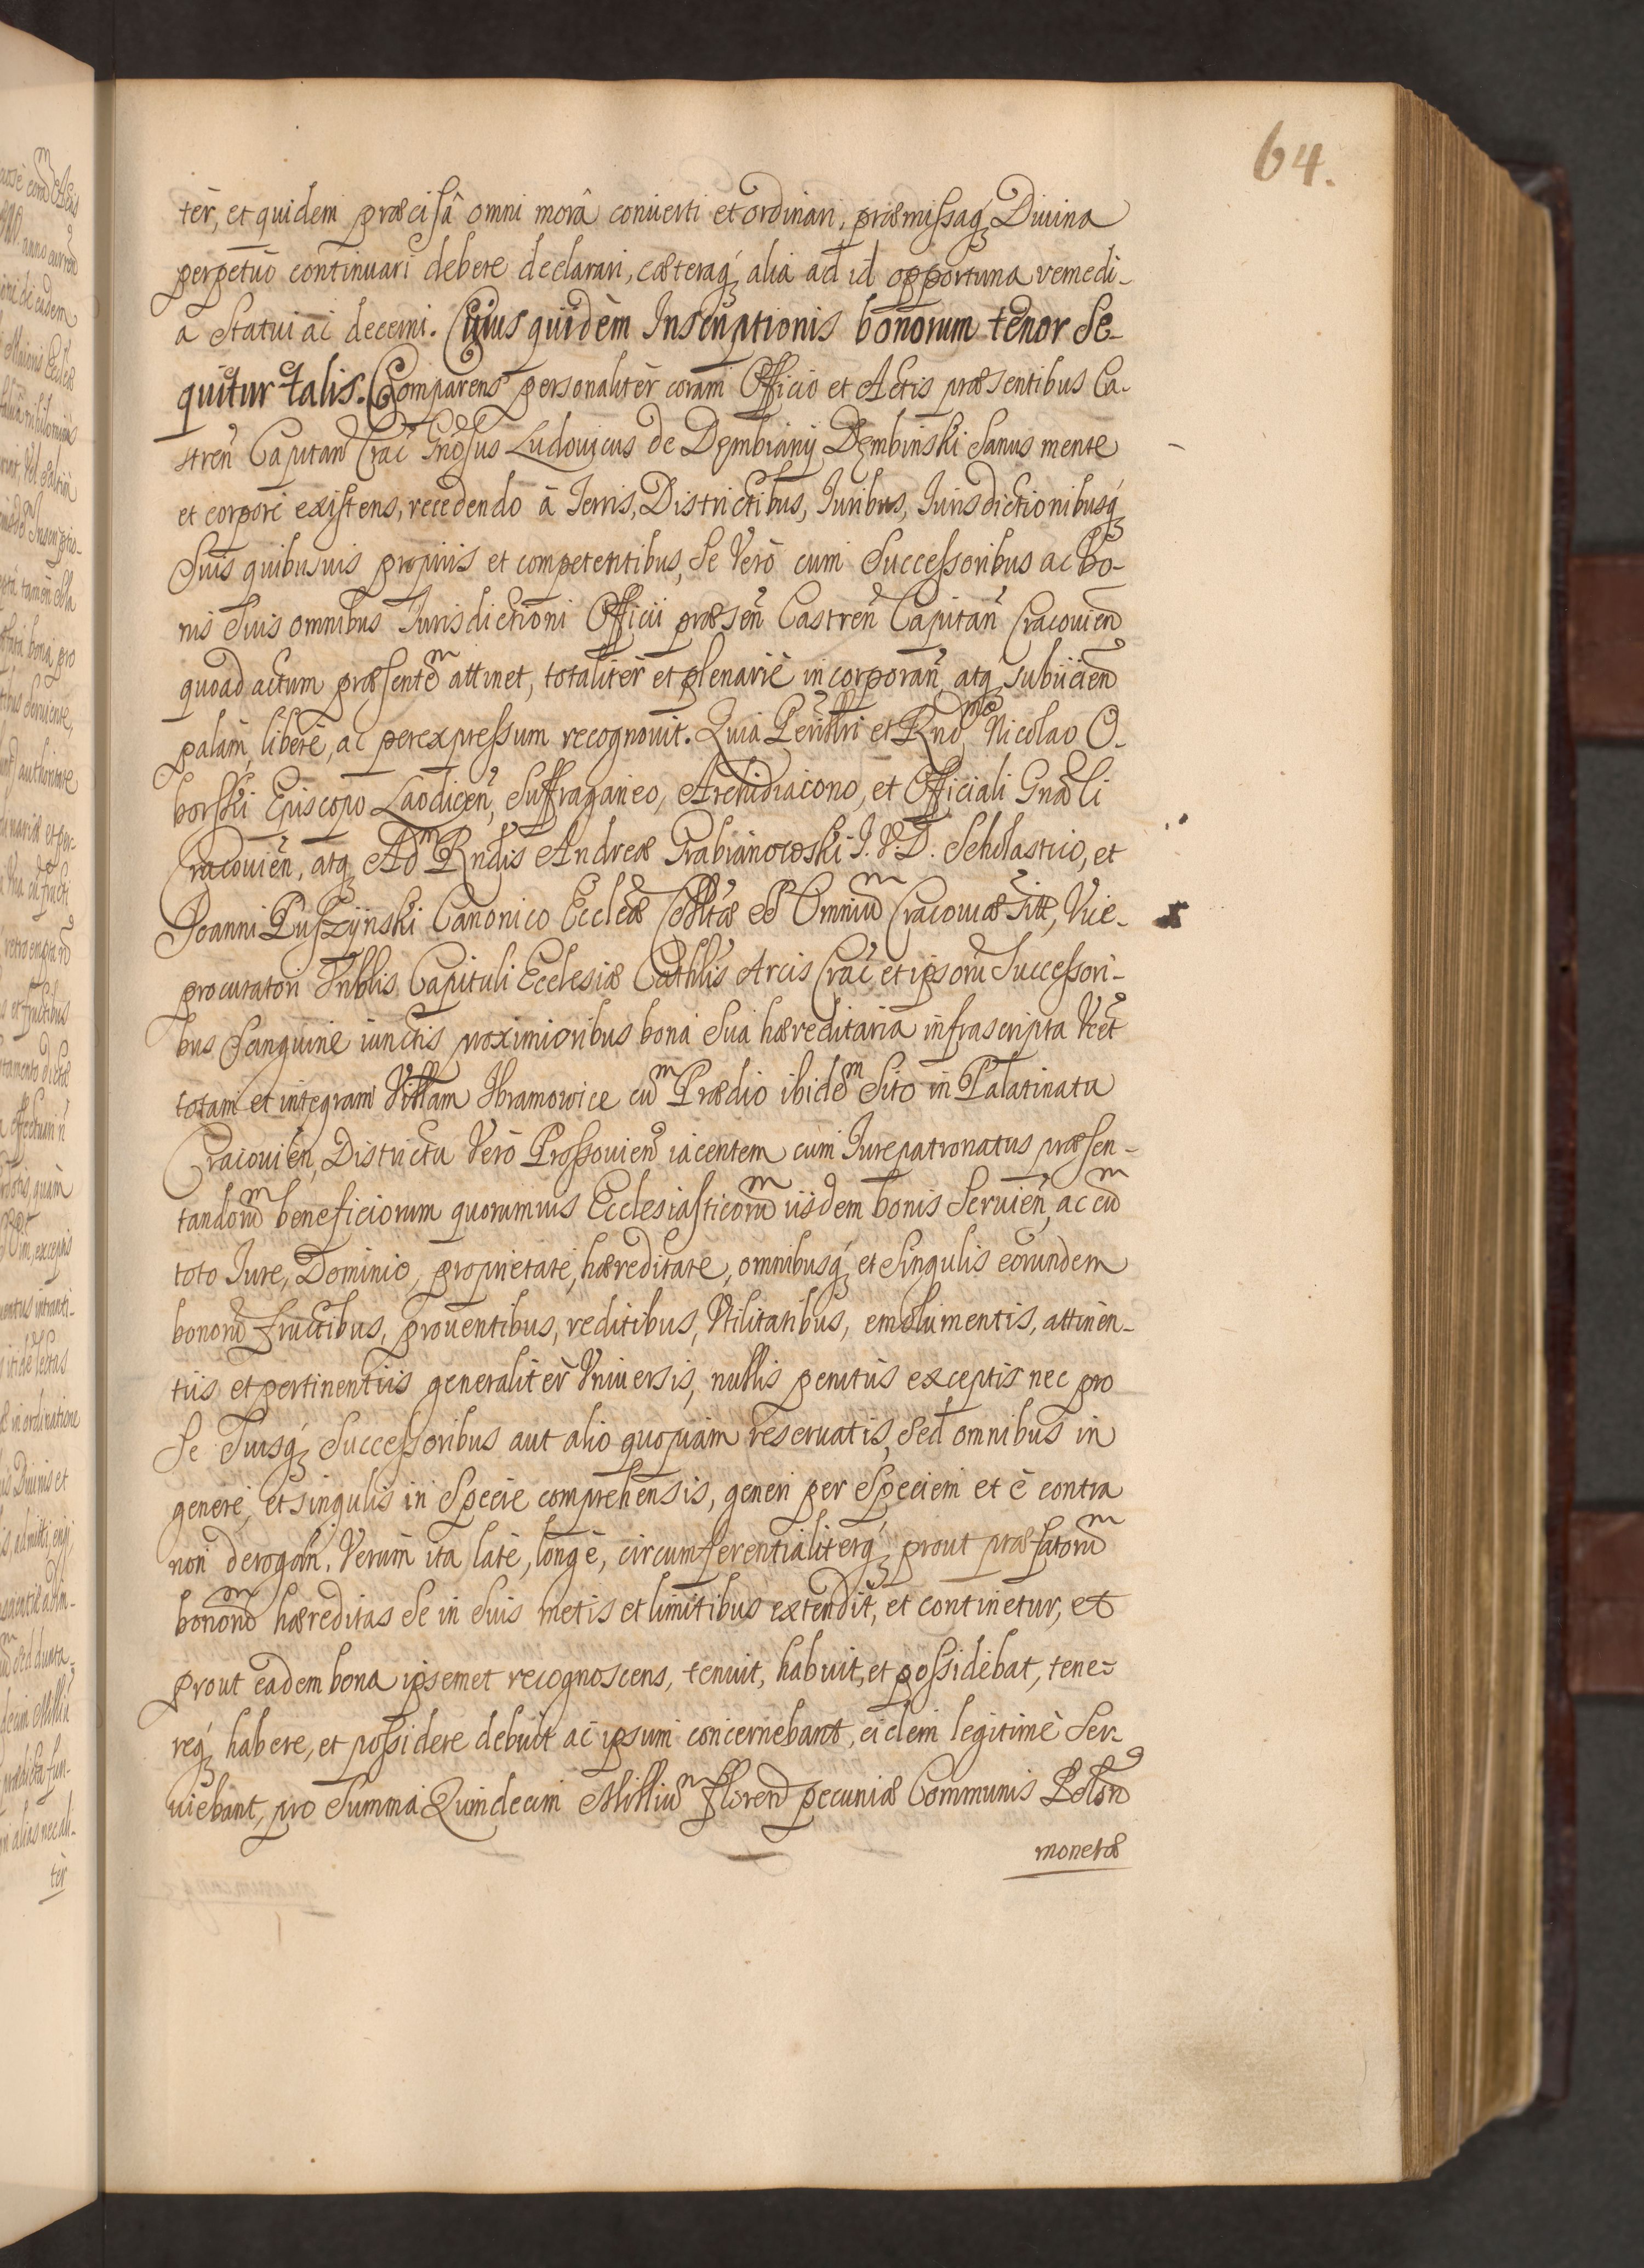 64.
tèr, et quidem præcisâ omni morâ conuerti et ordinari, præmissaq́ Diuina
perpetuò continuari debere declarari, cæteraq́ alia ad id opportuna remedi-
a statui ac decerni. Cuius quidèm Inscriptionis bonorum tenor se-
quitur talis. Comparens personalitèr coram Officio et Actis præsentibus Ca-
stren̄ Capitan̄ Crac̄ Gn̄osus Ludouicus de Dęmbiany Dęmbinski sanus mente
et corpore existens, recedendo à Terris, Districtibus, Iuribus, Iurisdictionibusq́
suis quibusuis proprijs et competentibus, se verò cum successoribus ac bo-
nis suis omnibus Iurisdictioni Officii præsen̄ Castren̄ Capitan̄ Cracouien̄
quoad actum præsente͞m attinet, totalitèr et plenariè incorporan̄ atq́ subijcien̄
palàm, liberè, ac perexpressum recognouit. Quia Perilłri et Rn̄dmo Nicolao O-
borski Episcopo Laodicen̄, Suffraganeo, Archidiacono, et Officiali Gn̄ali
Cracouien̄, atq́ Adm Rn̄dis Andreæ Grabianowski I.V.D. Scholastico, et
Joanni Puszÿnski Canonico Eccl̄æ Collītæ OO Omniūm Cracouiæ sitæ, Vice-
procuratori Vn̄blis Capituli Ecclesiæ Cathlis Arcis Crac̄ et ipsorū successori-
bus sanguine iunctis proximioribus bona sua hæreditaria infrascripta Vc̄t
totam et integram Villam Ibramowice cūm Prædio ibidēm sito in Palatinatu
Cracouien̄, Districtu verò Prossouien̄ iacentem cum Iurepatronatus præsen-
tandorūm beneficiorum quorumuis Ecclesiasticorūm iisdem bonis seruien̄, ac cūm
toto Iure, Dominio, proprietate, hæreditate, omnibusq́ et singulis eorundem
bonorū fructibus, prouentibus, reditibus, Vtilitatibus, emolumentis, attinen-
tiis et pertinentiis generalitèr Vniuersis, nullis penitùs exceptis nec pro
se suisq́ successoribus aut alio quopiam reseruatis, sed omnibus in
genere, et singulis in specie comprehensis, generi per speciem et è contra
non derogan̄. Verùm ita latè, longè, circumferentialiterq́ prout præfatorūm
bonorūm hæreditas se in suis metis et limitibus extendit, et continetur, et
prout eadem bona ipsemet recognoscens, tenuit, habuit, et possidebat, tene-
req́ habere, et possidere debuit ac ipsum concernebant, eidem legitimè ser-
uiebant, pro summa Quindecim Milliūm floren̄ pecuniæ Communis Polon̄
monetæ